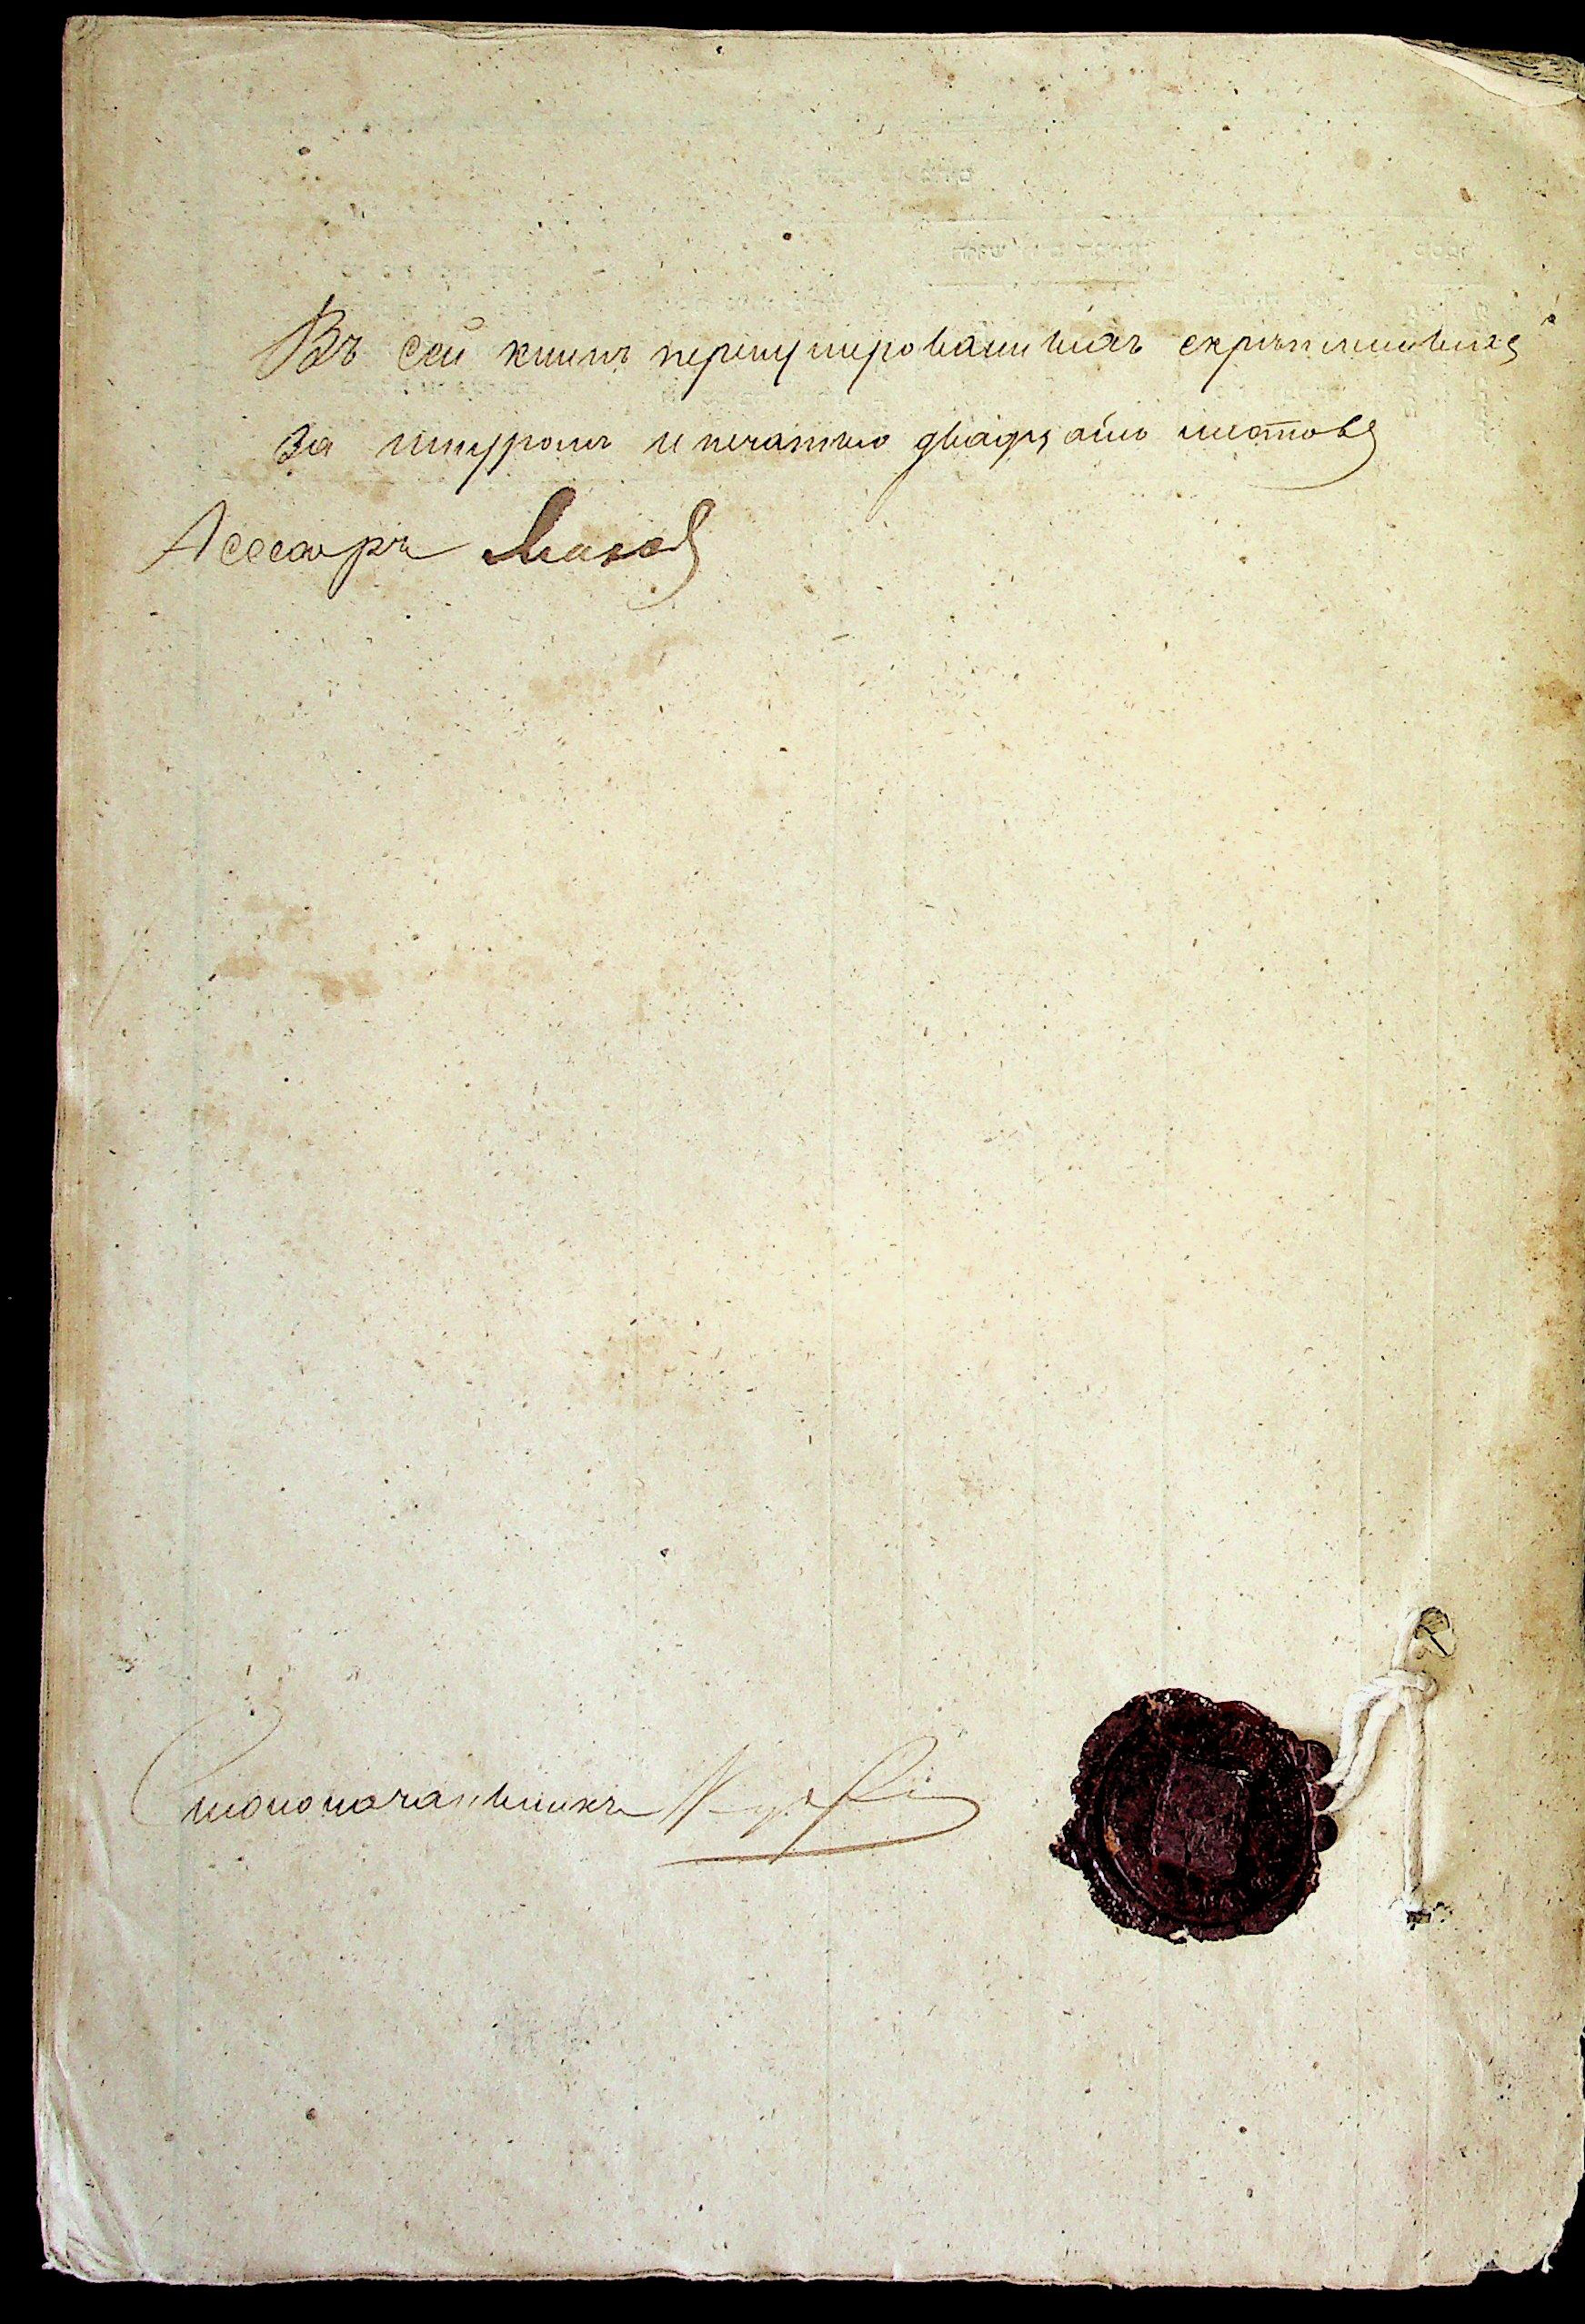 Въ сей книгѣ перенумерованныхъ скрѣпленныхъ
за шнуромъ и печатью двадцать листовъ
Асессоръ
Столоначальникъ